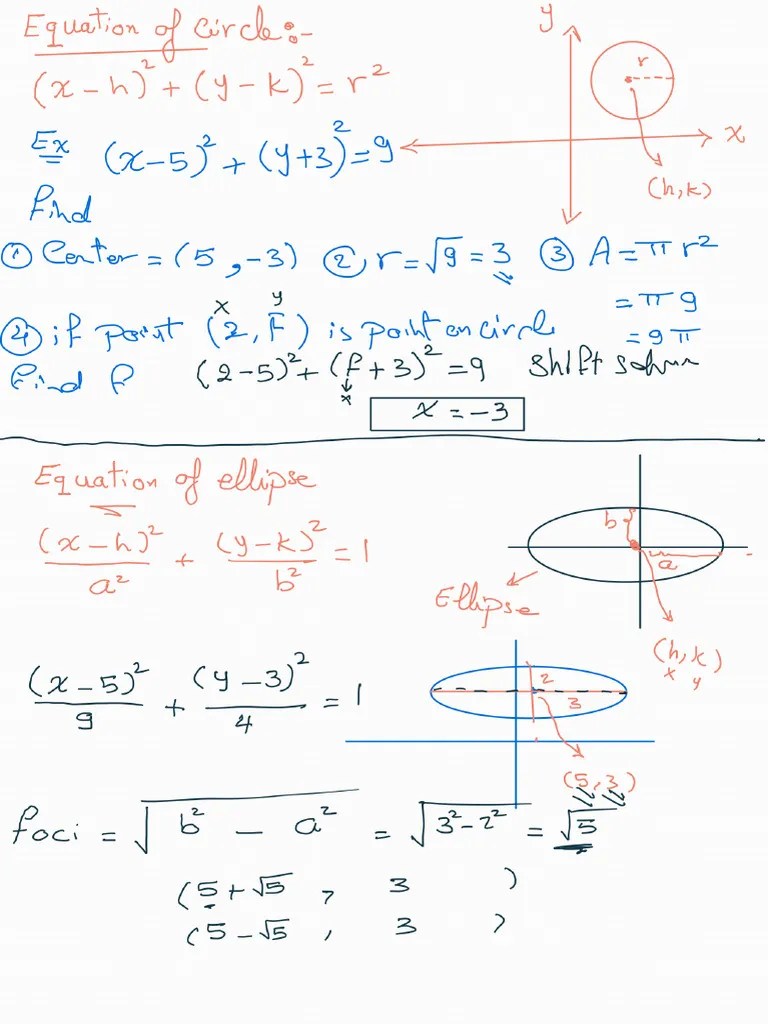 Equation of circle:-
y
(x-h)² + (y-k)² = r²
r
x
(h,k)
Ex (x-5)² + (y+3)² = 9
find
① Center = (5, -3) ② r = √9 = 3 ③ A = π r²
= π 9
= 9 π
x y
④ if point (2, F) is point on circle
find f (2-5)² + (f+3)² = 9 shift
x
x = -3
Equation of ellipse
(x-h)²/a² + (y-k)²/b² = 1
b
a
Ellipse
(h,k)
x y
(x-5)²/9 + (y-3)²/4 = 1
2
3
(5,3)
foci = √(b² - a²) = √(3²-2²) = √5
(5+√5, 3)
(5-√5, 3)